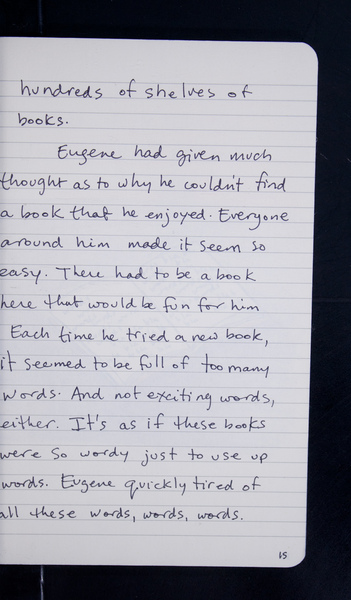 hundreds of shelves of
books.
Eugene had given much
thought as to why he couldn't find
a book that he enjoyed. Everyone
around him made it seem so
easy. There had to be a book
here that would be fun for him
Each time he tried a new book,
it seemed to be full of too many
words. And not exciting words,
either. It's as if these books
were so wordy just to use up
words. Eugene quickly tired of
all these words, words, words.
15